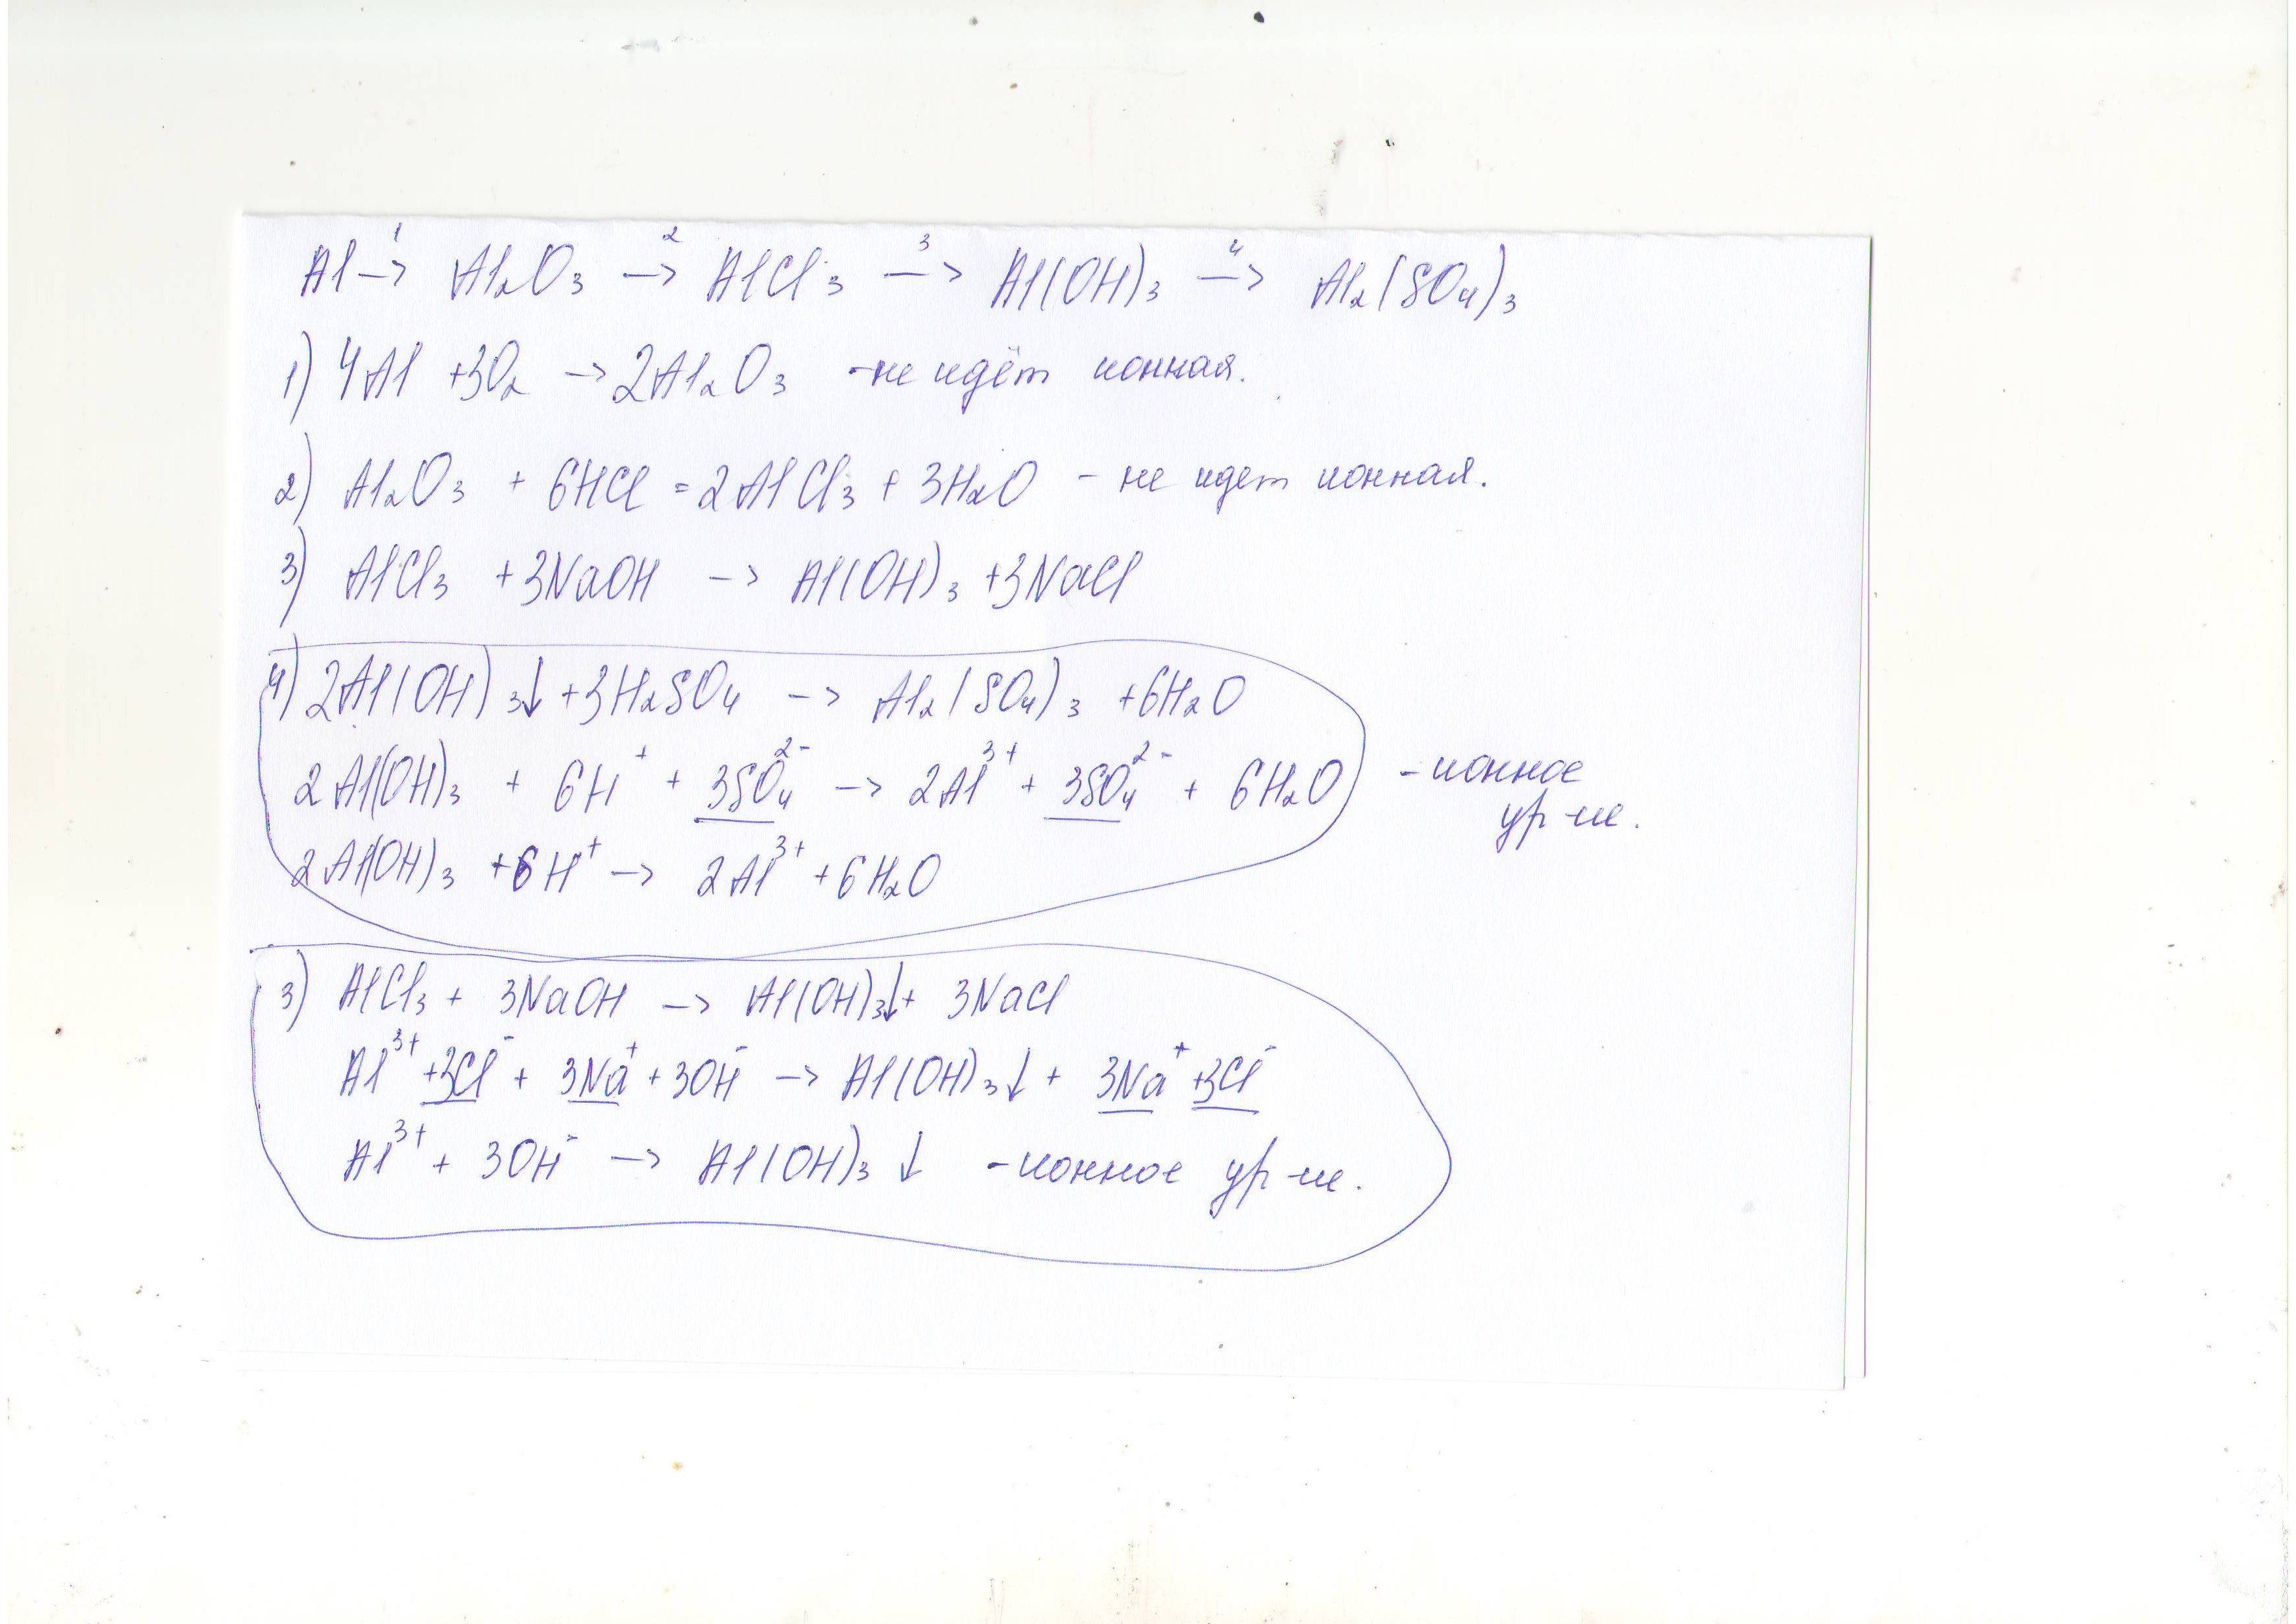 Al →¹ Al₂O₃ →² AlCl₃ →³ Al(OH)₃ →⁴ Al₂(SO₄)₃
1) 4Al + 3O₂ → 2Al₂O₃ - не идёт ионная.
2) Al₂O₃ + 6HCl = 2AlCl₃ + 3H₂O - не идет ионная.
3) AlCl₃ + 3NaOH → Al(OH)₃ + 3NaCl
4) 2Al(OH)₃↓ + 3H₂SO₄ → Al₂(SO₄)₃ + 6H₂O
2Al(OH)₃ + 6H⁺ + 3SO₄²⁻ → 2Al³⁺ + 3SO₄²⁻ + 6H₂O - ионное
ур-ие.
2Al(OH)₃ + 6H⁺ → 2Al³⁺ + 6H₂O
3) AlCl₃ + 3NaOH → Al(OH)₃↓ + 3NaCl
Al³⁺ + 3Cl⁻ + 3Na⁺ + 3OH⁻ → Al(OH)₃↓ + 3Na⁺ + 3Cl⁻
Al³⁺ + 3OH⁻ → Al(OH)₃↓ - ионное ур-ие.